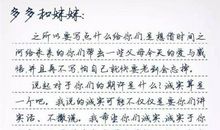 多多和妹妹：
之所以要写点什么给你们是想借时间之
河给未来的你们带去一些父母今天的爱与感
悟并且再不写怕自己就快要老到会忘掉。
说起对于你们的期许是什么？诚实算是
一个吧，我说的诚实可能不仅仅是要你们讲
实话、不撒谎，我希望你们诚实诚于